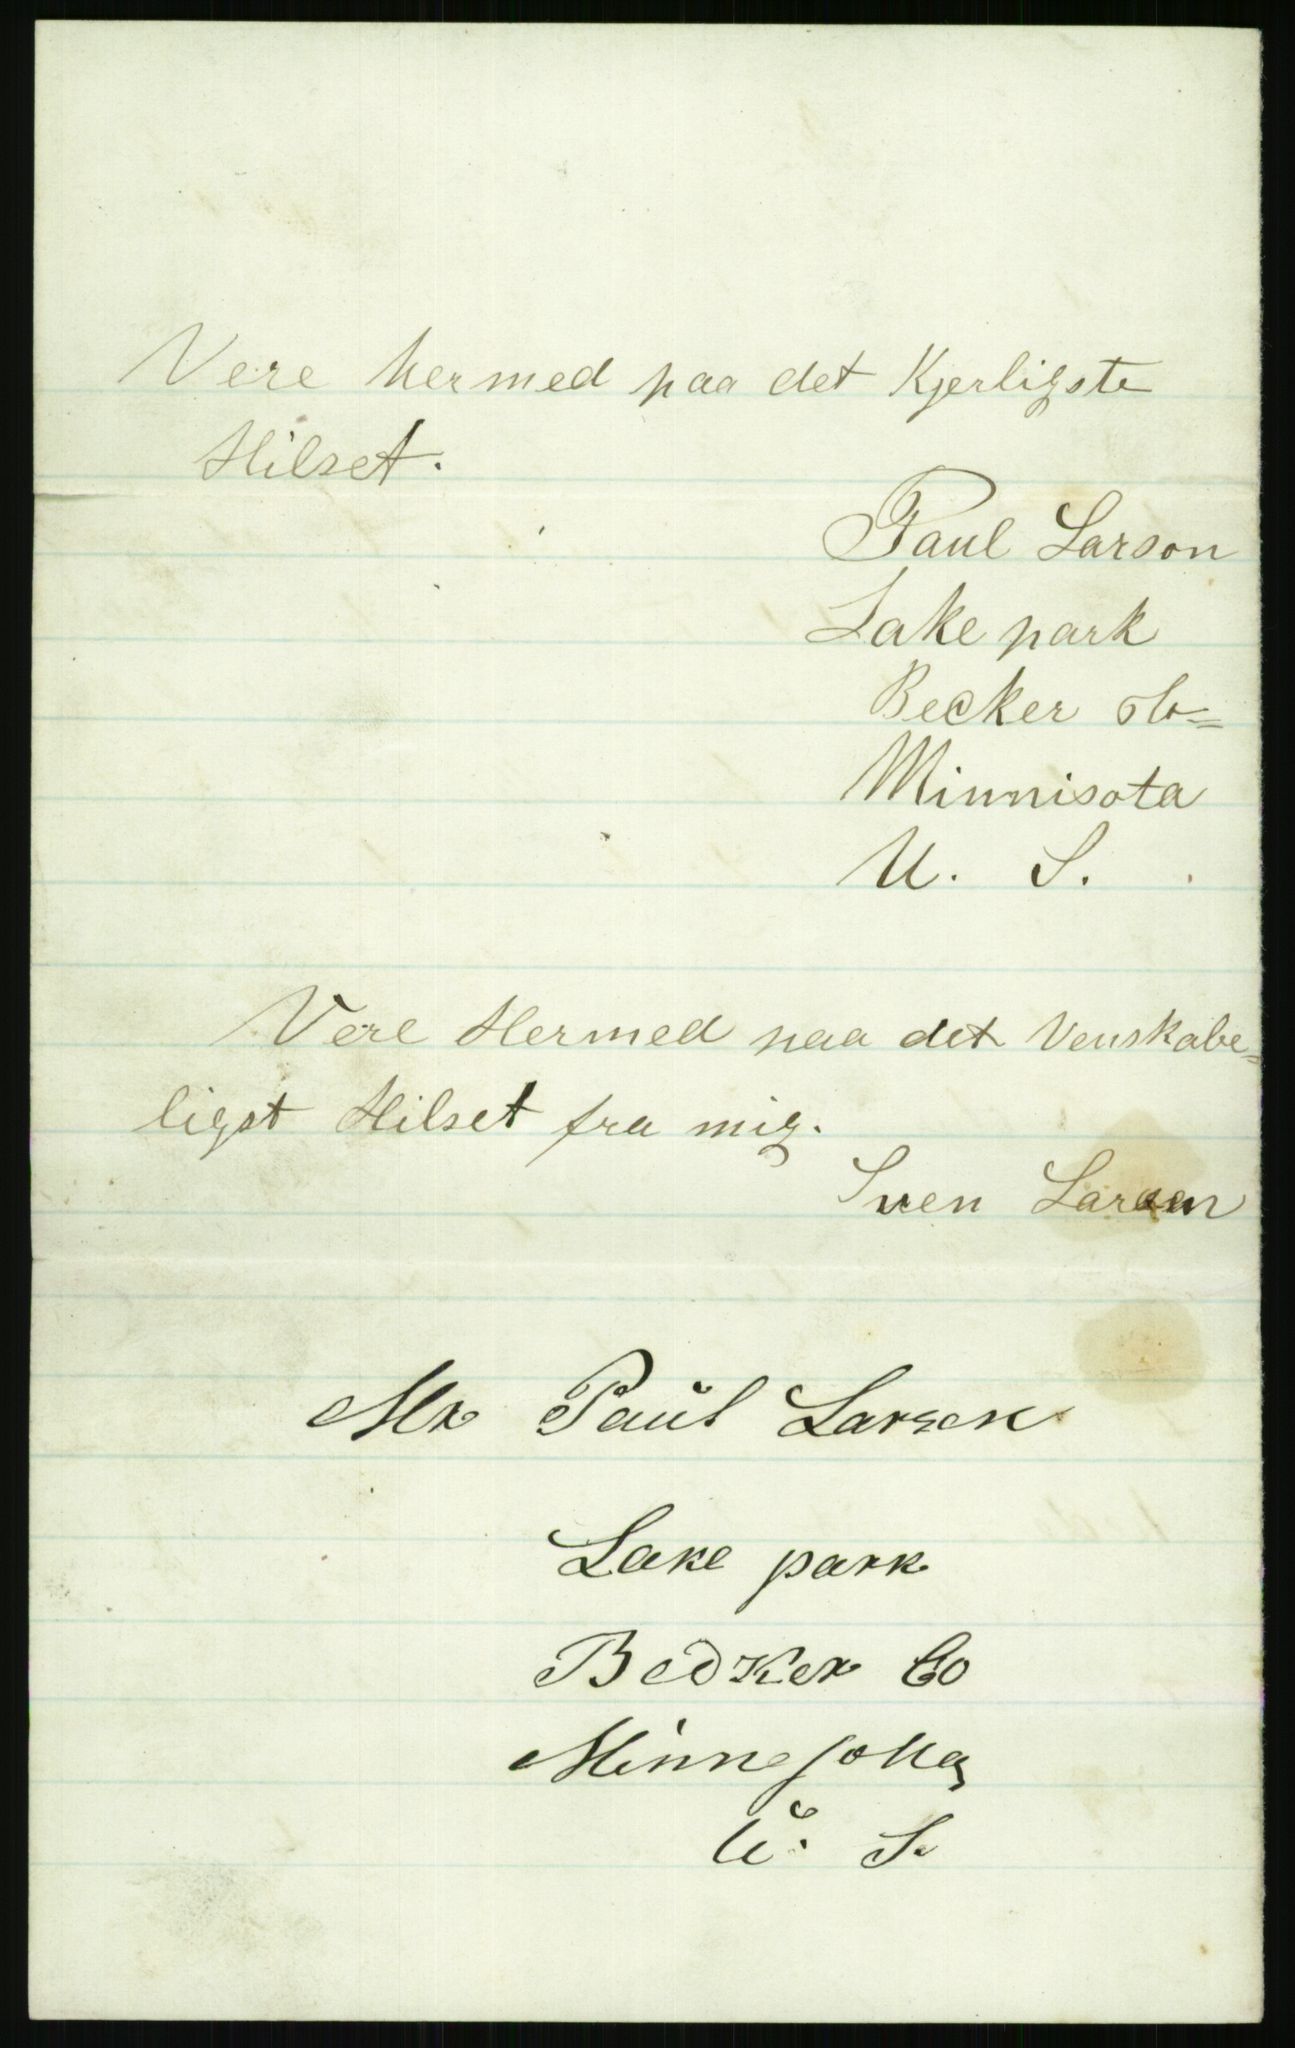 Vere hermed paa det Kjerligste
Hilset.
Paul Larson
Lake park
Becker Co=
Minnisota
U. S.
Vere Hermed paa det Venskabe=
ligst Hilset fra mig.
Sven Larsen
Mr Paul Larsen
Lake park
Becker Co
Minnesotta
U. S.